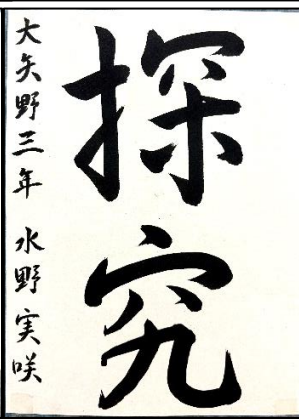 探究
大矢野三年 水野実咲